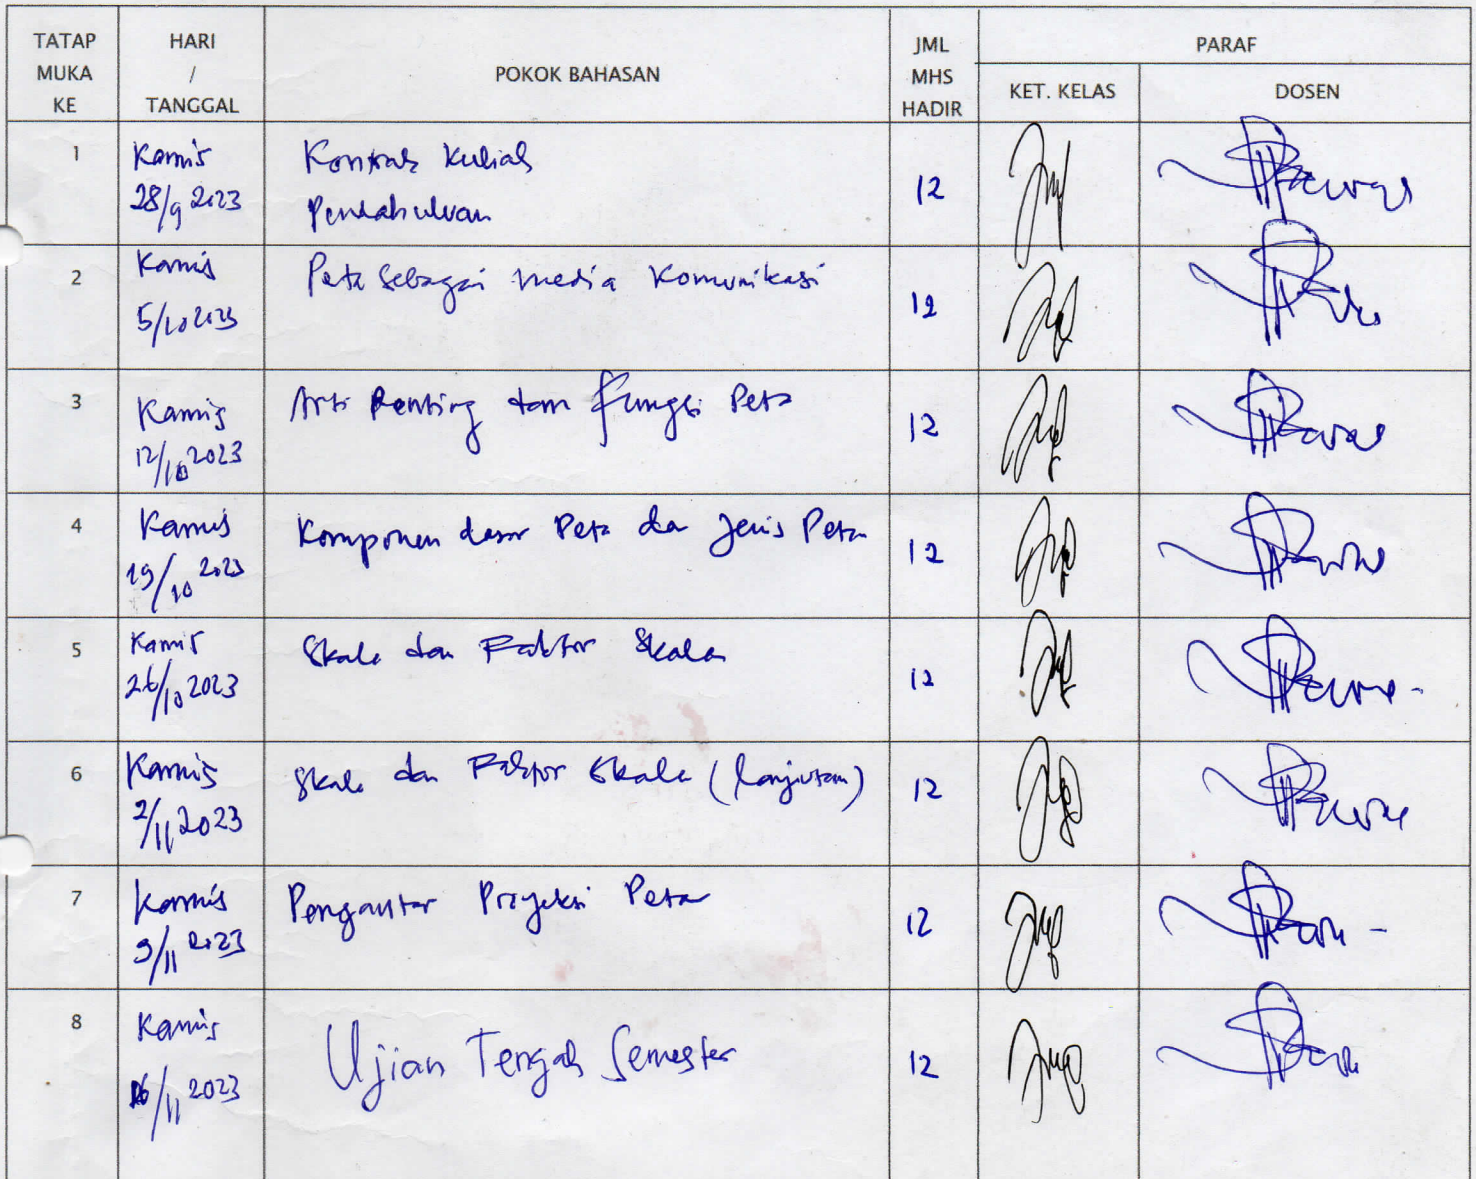 TATAP MUKA KE
HARI / TANGGAL
POKOK BAHASAN
JML MHS HADIR
PARAF
KET. KELAS
DOSEN
1
Kamis
28/9 2023
Kontrak Kuliah
Pendahuluan
12
2
Kamis
5/10 2023
Peta sebagai media Komunikasi
12
3
Kamis
12/10 2023
Arti Penting dan fungsi Peta
12
4
Kamis
19/10 2023
Komponen dasar Peta dan Jenis Peta
12
5
Kamis
26/10 2023
Skala dan Faktor Skala
12
6
Kamis
2/11 2023
Skala dan Faktor Skala (lanjutan)
12
7
Kamis
9/11 2023
Pengantar Proyeksi Peta
12
8
Kamis
16/11 2023
Ujian Tengah Semester
12